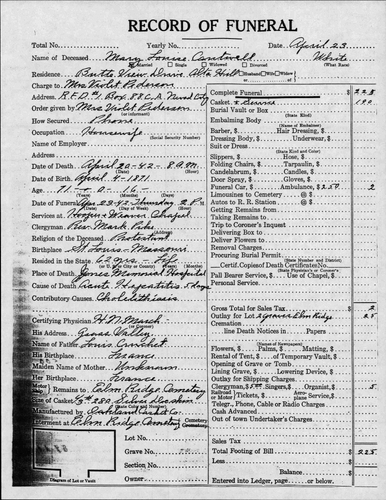 RECORD OF FUNERAL
Total No. Yearly No. Date April 23
Name of Deceased Mary Louise Cantwell White
Married Single Widowed (What Race)
Residence Butte View Drive Alta Hill Husband Wife Widow of
Charge to Mrs Violet Pederson
Address R.F.D. #1 Box 178 C.A. Nevad City
Order given by Mrs Violet Pederson
(or informant)
How Secured Phone
Occupation Housewife
(Social Security Number)
Name of Employer
Address
Date of Death April 20-42- 8 A.M.
Date of Birth April 4-1871
Age 71 - 0 - 16 -
(Years) (Months) (Days)
Date of Funeral Apr 23-42 Thursday 2 P.m.
(Date) (Day of Week) (Hour)
Services at Hooper Weaver Chapel
Clergyman Rev Mark
Religion of the Deceased Protestant
Birthplace St. Louis Missouri
Resided in the State 62 yrs. - Life
Place of Death Jones Memorial Hospital
Cause of Death Acute Hepatitis
Contributory Causes Cholelithiasis
Certifying Physician H.N. March
His Address Grass Valley
Name of Father Louis
His Birthplace France
Maiden Name of Mother Unknown
Her Birthplace France
Remains to Elm Ridge Cemetery
Size of Casket 6/3 Silver
(State Color and Number)
Manufactured by Oakland Casket Co.
Interment at Elm Ridge Cemetery Cemetery Crematory
Lot No.
Grave No.
Section No.
Owner
Diagram of Lot or Vault
Complete Funeral $ 225
Casket & Service 190
Burial Vault or Box
(State Kind)
Embalming Body
(Name of Embalmer)
Barber, $ Hair Dressing, $
Dressing Body, $ Underwear, $
Suit or Dress
(State Kind and Color)
Slippers, $ Hose, $
Folding Chairs, $ Tarpaulin, $
Candelabrum, $ Candles, $
Door Spray, $ Gloves, $
Funeral Car, $ Ambulance, $2.50 2
Limousines to Cemetery @ $
Autos to R. R. Station @ $
Getting Remains from
Taking Remains to
Trip to Coroner's Inquest
Delivering Box to
Deliver Flowers to
Removal Charges
Procuring Burial Permit
(State Member and District)
Certif. Copies of Death Certificates No.
(State Physician's or Coroner's)
Pall Bearer Service, $ Use of Chapel, $
Personal Service
Gross Total for Sales Tax $ 2
Outlay for Lot or Grave Elm Ridge 25
Cremation
line Death Notices in Papers
(Names of Newspapers)
Flowers, $ Palms, $ Matting, $
Rental of Tent, $ of Temporary Vault, $
Opening of Grave or Tomb
Lining Grave, $ Lowering Device, $
Outlay for Shipping Charges
Clergyman, $5.00 Singers, $ Organist, $ 5
Railroad or Motor Tickets, $ Aeroplane Service, $
Telegr., Phone, Cable or Radio Charges
Cash Advanced
Out of town Undertaker's Charges
Sales Tax
Total Footing of Bill $ 225
Less
Balance
Entered into Ledger, page or below.